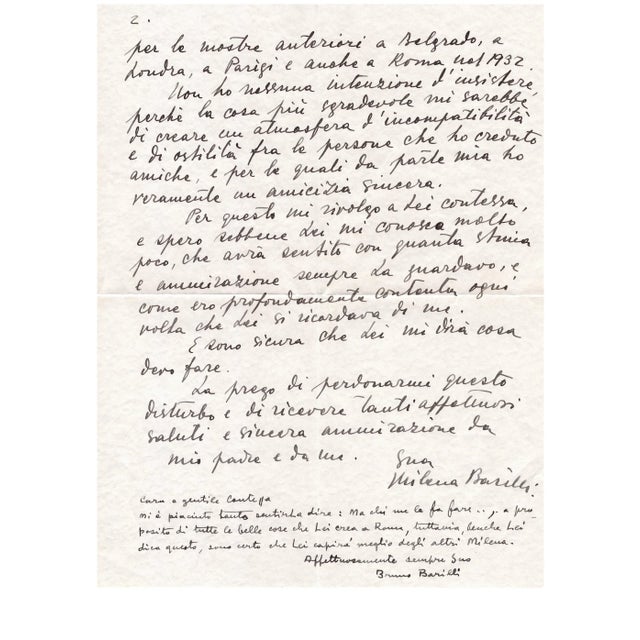 2.
per le mostre anteriori a Belgrado, a
Londra, a Parigi e anche a Roma nel 1932.
Non ho nessuna intenzione d'insistere,
perchè la cosa più sgradevole mi sarebbe
di creare un atmosfera d'incompatibilità
e di ostilità fra le persone che ho creduto
amiche, e per le quali da parte mia ho
veramente un amicizia sincera.
Per questo mi rivolgo a Lei contessa,
e spero sebbene Lei mi conosca molto
poco, che avrà sentito con quanta stima
e ammirazione sempre La guardavo, e
come ero profondamente contenta ogni
volta che Lei si ricordava di me.
E sono sicura che Lei mi dirà cosa
devo fare.
La prego di perdonarmi questo
disturbo e di ricevere tanti affettuosi
saluti e sincera ammirazione da
mio padre e da me.
Sua
Milena Barilli.
Cara e gentile Contessa
mi è piaciuto tanto sentirla dire: Ma chi me la fa fare..., a pro-
posito di tutte le belle cose che Lei crea a Roma, tuttavia, benche Lei
dica questo, sono certo che Lei capirà meglio degli altri Milena.
Affettuosamente sempre Suo
Bruno Barilli